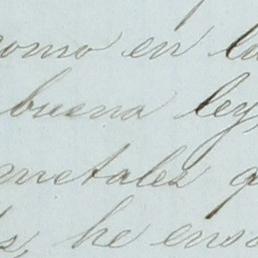 como en la
buena ley,
metales q
s, he ensa